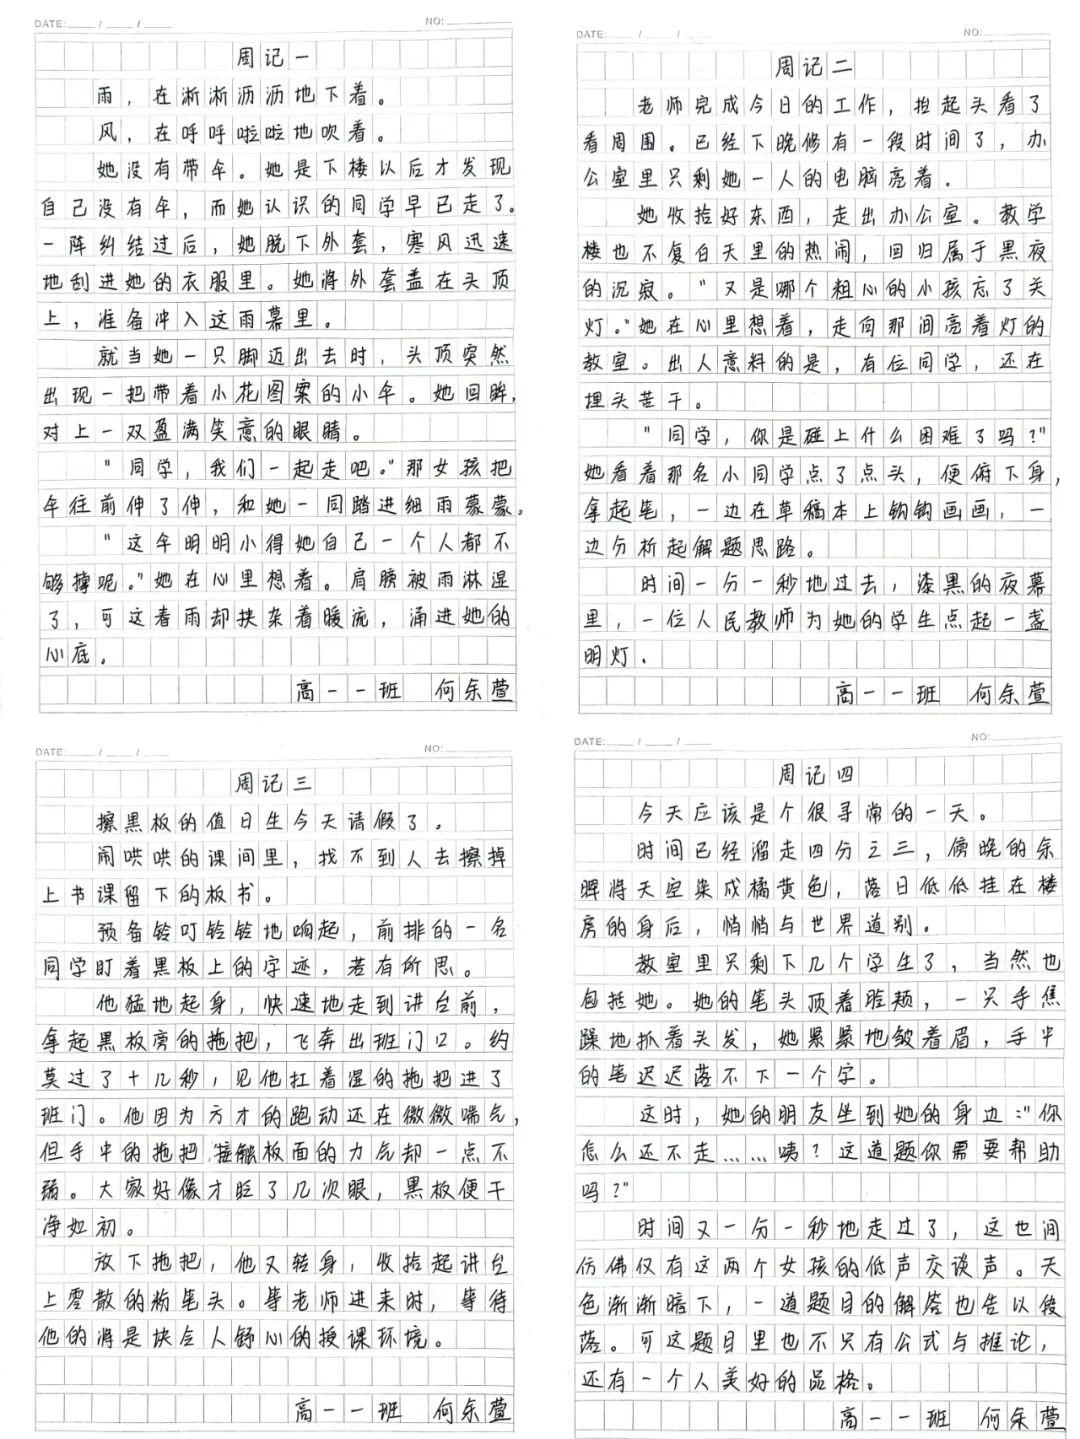 DATE:____/____/____ NO:________
周记一
雨，在淅淅沥沥地下着。
风，在呼呼啦啦地吹着。
她没有带伞。她是下楼以后才发现
自己没有伞，而她认识的同学早已走了。
一阵纠结过后，她脱下外套，寒风迅速
地刮进她的衣服里。她将外套盖在头顶
上，准备冲入这雨幕里。
就当她一只脚迈出去时，头顶突然
出现一把带着小花图案的小伞。她回眸，
对上一双盈满笑意的眼睛。
"同学，我们一起走吧。"那女孩把
伞往前伸了伸，和她一同踏进细雨蒙蒙。
"这伞明明小得她自己一个人都不
够撑呢。"她在心里想着。肩膀被雨淋湿
了，可这春雨却挟杂着暖流，涌进她的
心底。
高一一班 何乐萱
DATE:____/____/____ NO:________
周记二
老师完成今日的工作，抬起头看了
看周围。已经下晚修有一段时间了，办
公室里只剩她一人的电脑亮着。
她收拾好东西，走出办公室。教学
楼也不复白天里的热闹，回归属于黑夜
的沉寂。"又是哪个粗心的小孩忘了关
灯。"她在心里想着，走向那间亮着灯的
教室。出人意料的是，有位同学，还在
埋头苦干。
"同学，你是碰上什么困难了吗？"
她看着那名小同学点了点头，便俯下身，
拿起笔，一边在草稿本上钩钩画画，一
边分析起解题思路。
时间一分一秒地过去，漆黑的夜幕
里，一位人民教师为她的学生点起一盏
明灯.
高一一班 何乐萱
DATE:____/____/____ NO:________
周记三
擦黑板的值日生今天请假了。
闹哄哄的课间里，找不到人去擦掉
上节课留下的板书。
预备铃叮铃铃地响起，前排的一名
同学盯着黑板上的字迹，若有所思。
他猛地起身，快速地走到讲台前，
拿起黑板旁的拖把，飞奔出班门口。约
莫过了十几秒，见他扛着湿的拖把进了
班门。他因为方才的跑动还在微微喘气，
但手中的拖把接触板面的力气却一点不
弱。大家好像才眨了几次眼，黑板便干
净如初。
放下拖把，他又转身，收拾起讲台
上零散的粉笔头。等老师进来时，等待
他的将是块令人舒心的授课环境。
高一一班 何乐萱
DATE:____/____/____ NO:________
周记四
今天应该是个很寻常的一天。
时间已经溜走四分之三，傍晚的余
晖将天空染成橘黄色，落日低低挂在楼
房的身后，悄悄与世界道别。
教室里只剩下几个学生了，当然也
包括她。她的笔头顶着脸颊，一只手焦
躁地抓着头发，她紧紧地皱着眉，手中
的笔迟迟落不下一个字。
这时，她的朋友坐到她的身边："你
怎么还不走……咦？这道题你需要帮助
吗？"
时间又一分一秒地走过了，这世间
仿佛仅有这两个女孩的低声交谈声。天
色渐渐暗下，一道题目的解答也告以段
落。可这题目里也不只有公式与推论，
还有一个人美好的品格。
高一一班 何乐萱